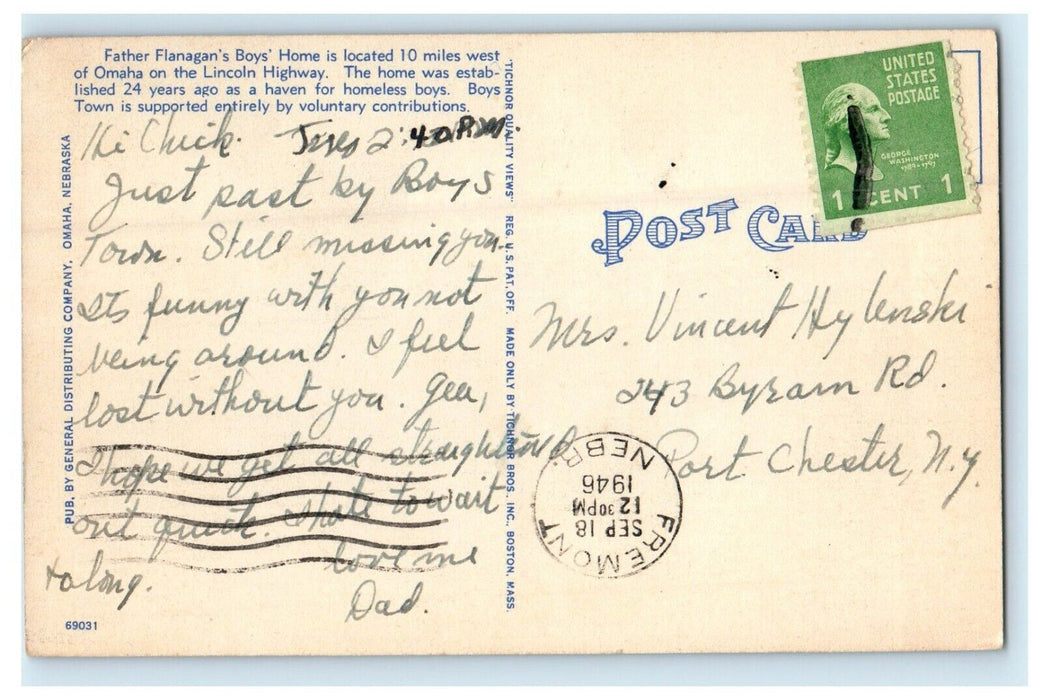 Father Flanagan's Boys' Home is located 10 miles west
of Omaha on the Lincoln Highway. The home was estab-
lished 24 years ago as a haven for homeless boys. Boys
Town is supported entirely by voluntary contributions.
Hi Chick. Tues 2:40 P.M.
Just past by Boys
Town. Still missing you.
Its funny with you not
being around. I feel
lost without you. Gee,
I hope we get all straightened
out quick. I hate to wait
to long.
love me
Dad.
69031
PUB. BY GENERAL DISTRIBUTING COMPANY, OMAHA, NEBRASKA
"TICHNOR QUALITY VIEWS" REG. U.S. PAT. OFF. MADE ONLY BY TICHNOR BROS. INC., BOSTON, MASS.
UNITED
STATES
POSTAGE
GEORGE
WASHINGTON
1789-1797
1 CENT 1
POST CARD
Mrs. Vincent Hylenski
243 Byram Rd.
Port Chester, N.Y.
FREMONT NEBR.
SEP 18
12 30 PM
1946